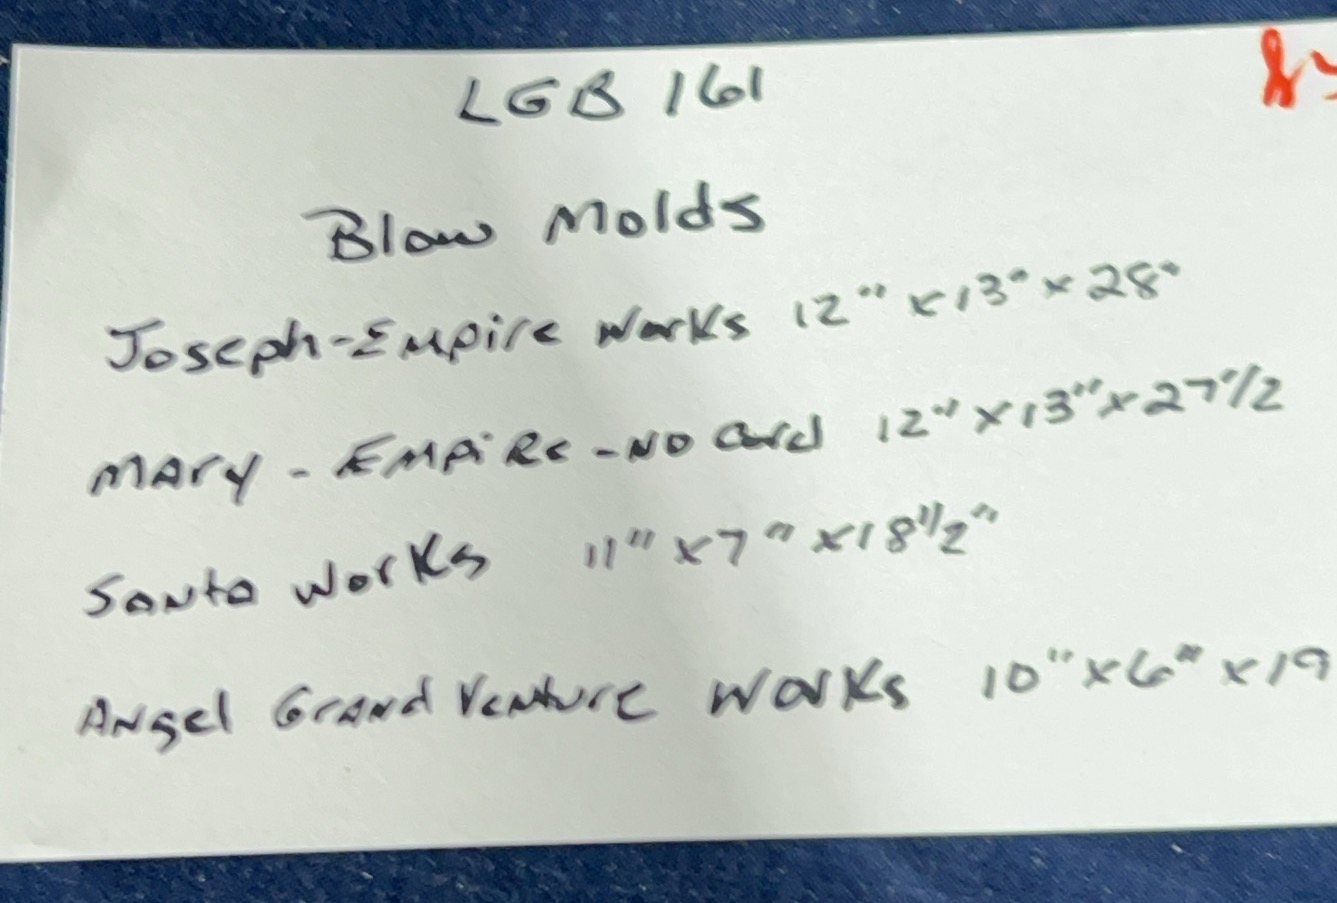 LGB 161
Blow Molds
Joseph-Empire Works 12" x 13" x 28"
Mary - Empire - No Cord 12" x 13" x 27 1/2
Santa Works 11" x 7" x 18 1/2"
Angel Grand Venture Works 10" x 6" x 19